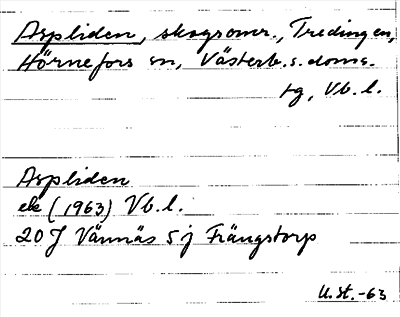 Aspliden, skogsomr., Tredingen,
Hörnefors sn, Västerb. s. doms.
tg, Vb. l.
Aspliden
ek (1963) Vb. l.
20 J Vännäs 5 j Frängstorp
U. St. -63